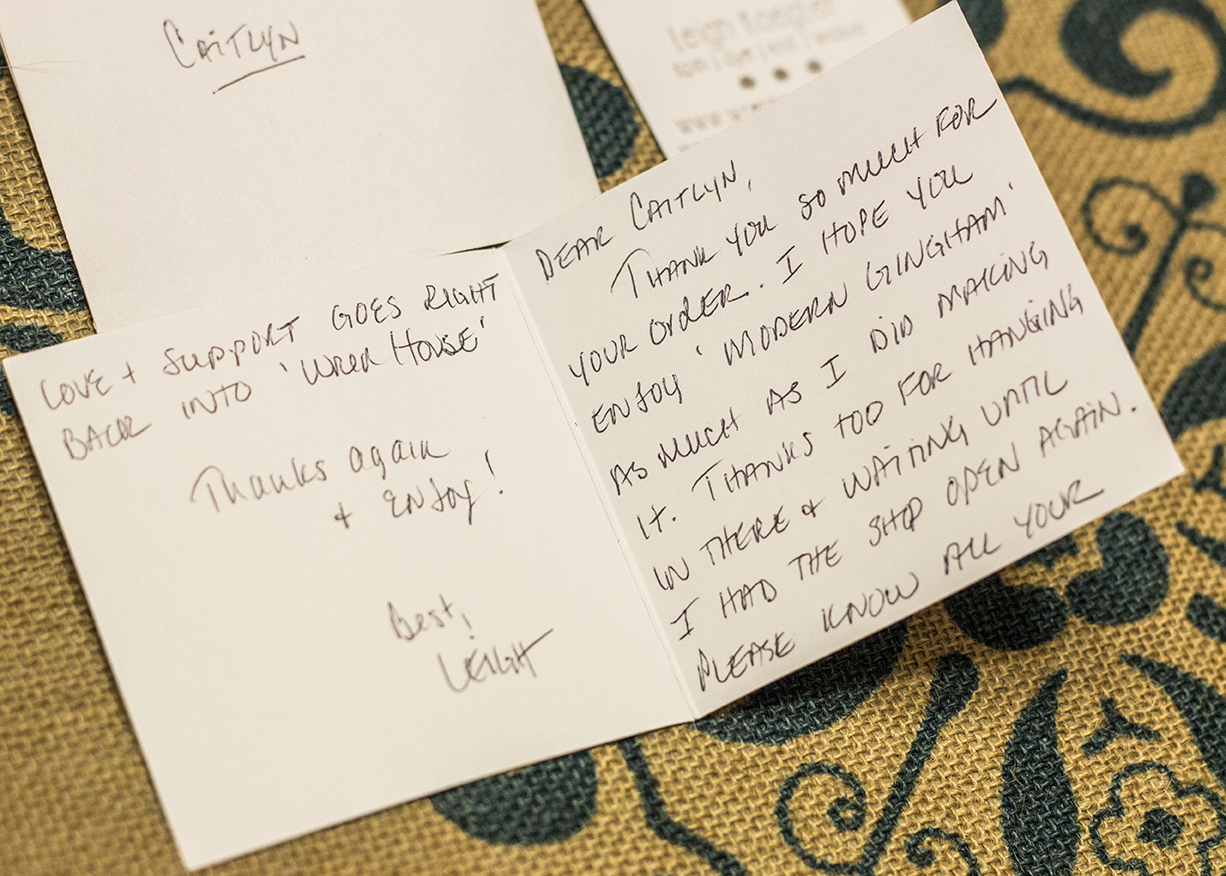 CAITLYN
DEAR CAITLYN,
THANK YOU SO MUCH FOR
YOUR ORDER. I HOPE YOU
ENJOY 'MODERN GINGHAM'
AS MUCH AS I DID MAKING
IT. THANKS TOO FOR HANGING
IN THERE + WAITING UNTIL
I HAD THE SHOP OPEN AGAIN.
PLEASE KNOW ALL YOUR
LOVE + SUPPORT GOES RIGHT
BACK INTO ' HOUSE'
Thanks again
+ ENJOY!
Best,
LEIGH
Leigh